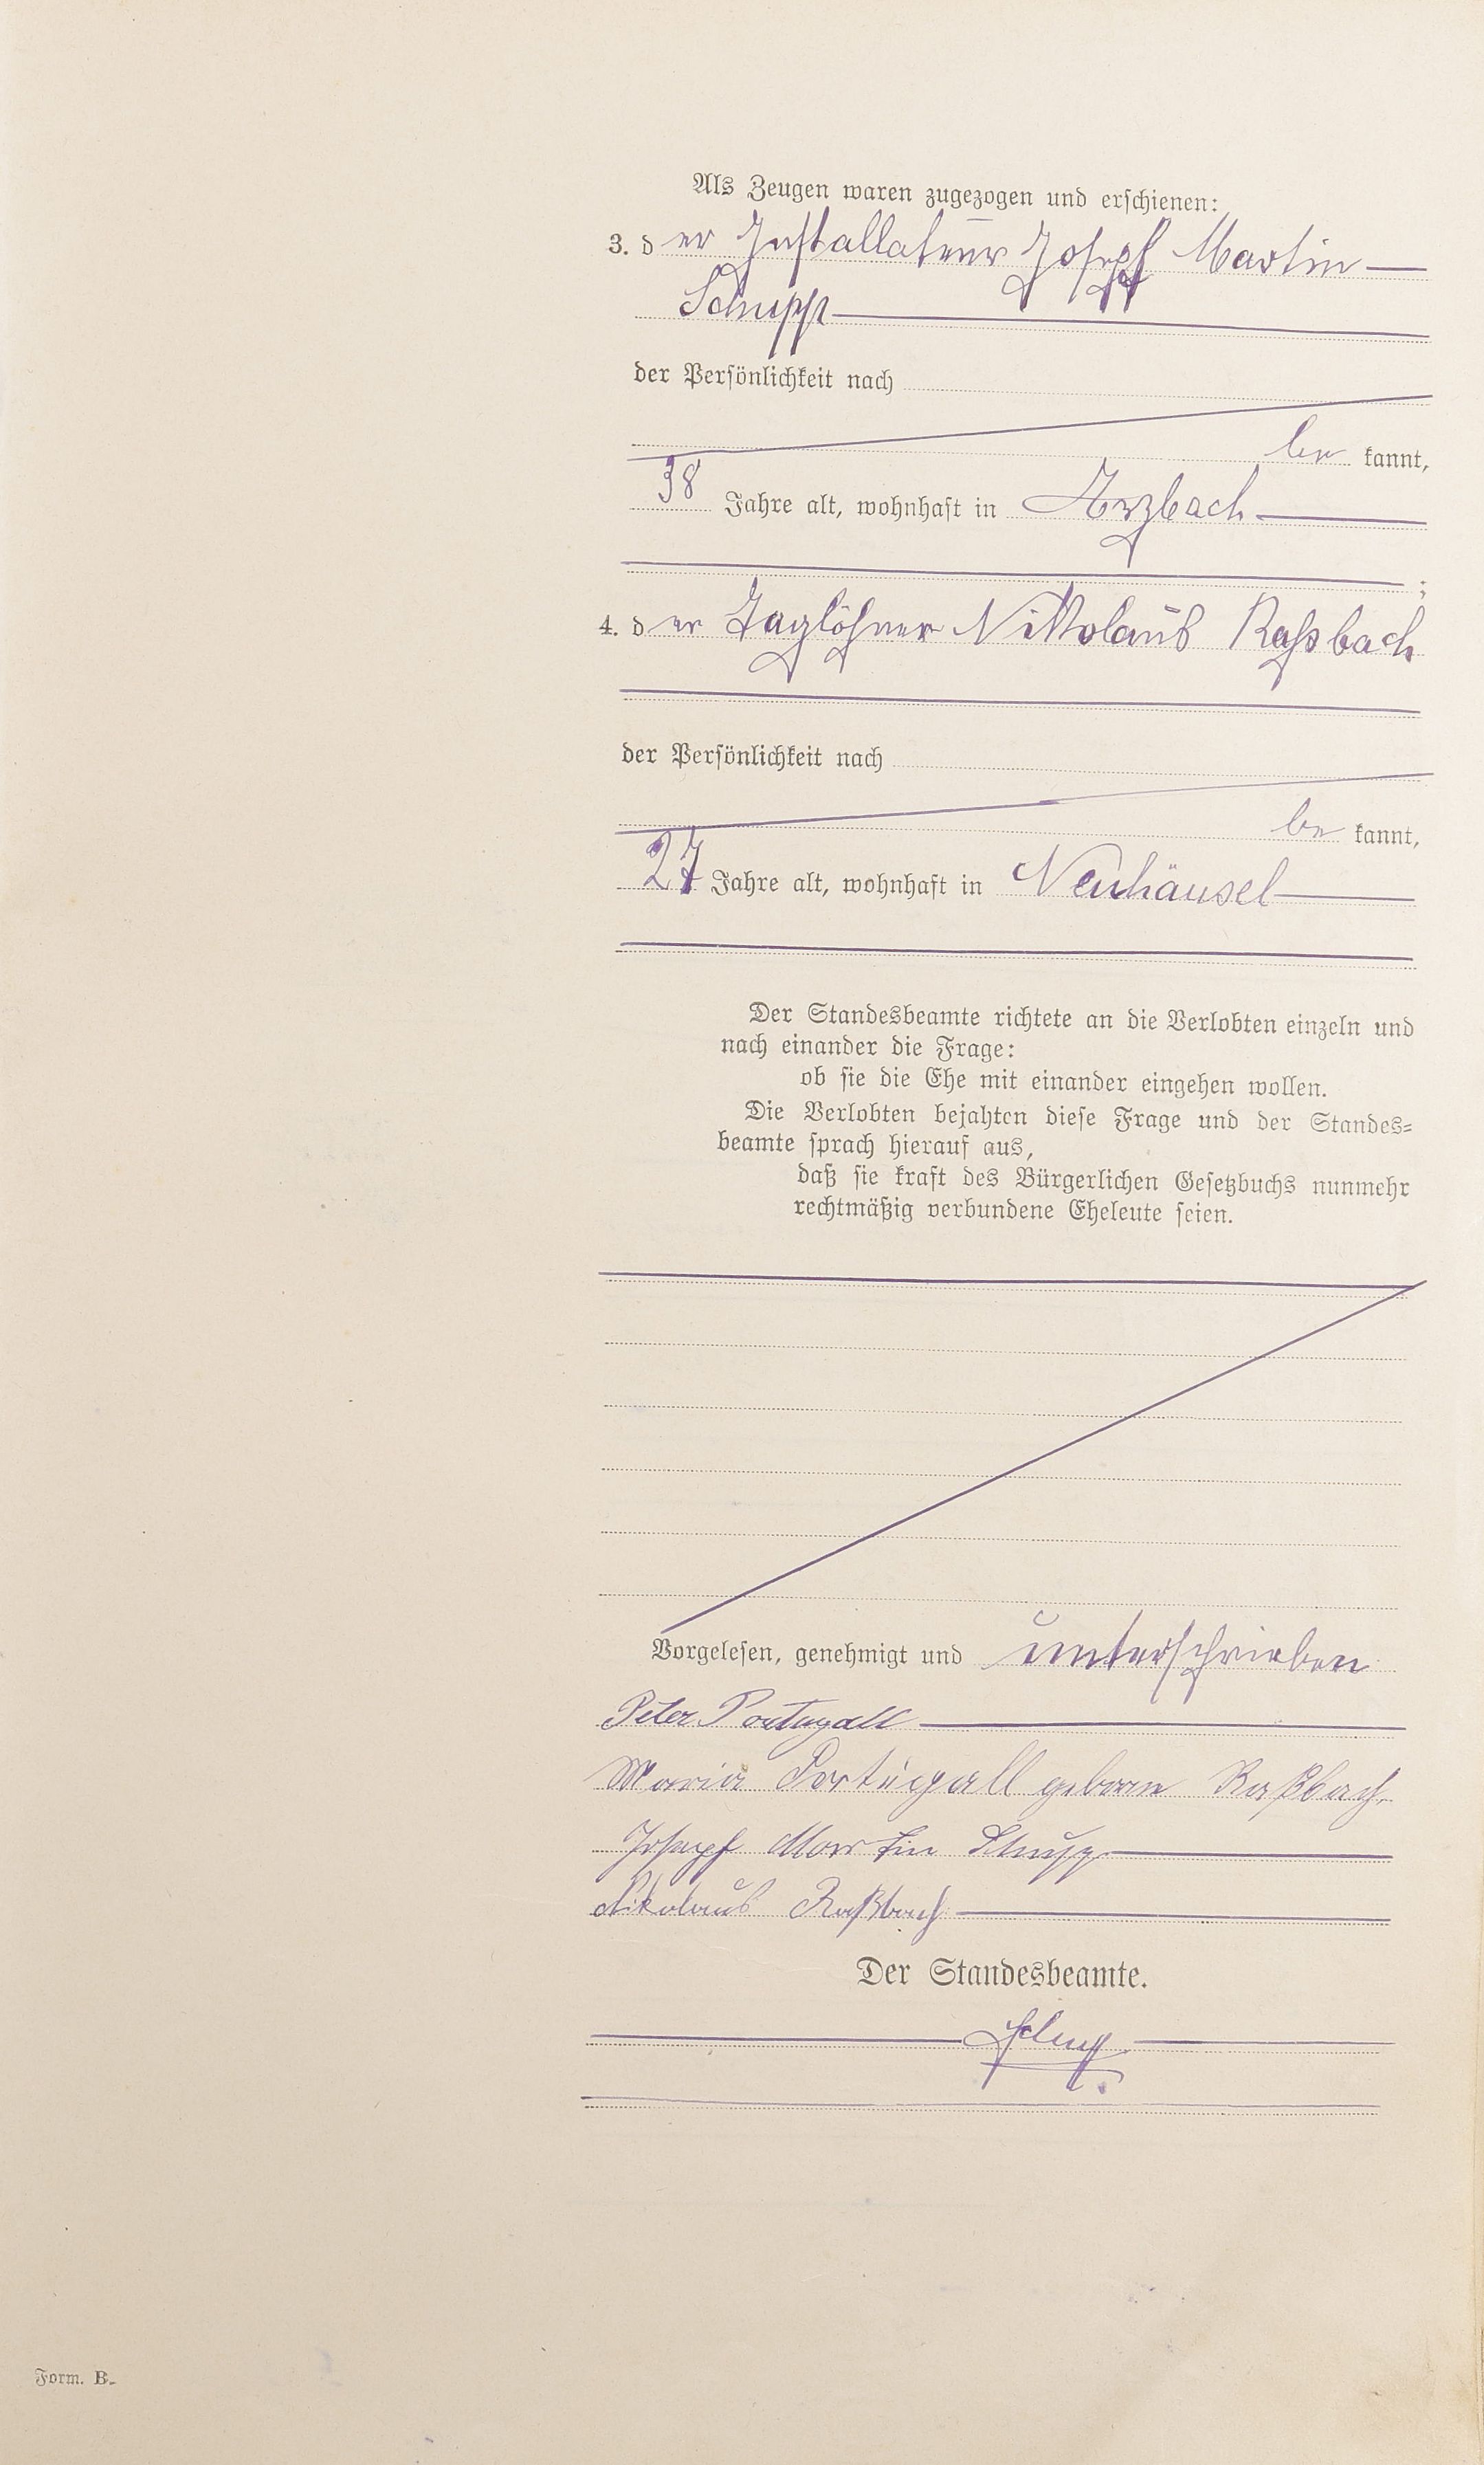 Als Zeugen waren zugezogen und erschienen:
3. der Installateur Joseph Martin
Schupp
der Persönlichkeit nach
be kannt,
38 Jahre alt, wohnhaft in Arzbach
;
4. der Taglöhner Nikolaus Raßbach
der Persönlichkeit nach
be kannt,
27 Jahre alt, wohnhaft in Neuhäusel
Der Standesbeamte richtete an die Verlobten einzeln und
nach einander die Frage:
ob sie die Ehe mit einander eingehen wollen.
Die Verlobten bejahten diese Frage und der Standes-
beamte sprach hierauf aus,
daß sie kraft des Bürgerlichen Gesetzbuchs nunmehr
rechtmäßig verbundene Eheleute seien.
Vorgelesen, genehmigt und unterschrieben
Peter Portugall
Maria Portugall geborne Raßbach
Joseph Martin Schupp
Nikolaus Raßbach
Der Standesbeamte.
Form. B.